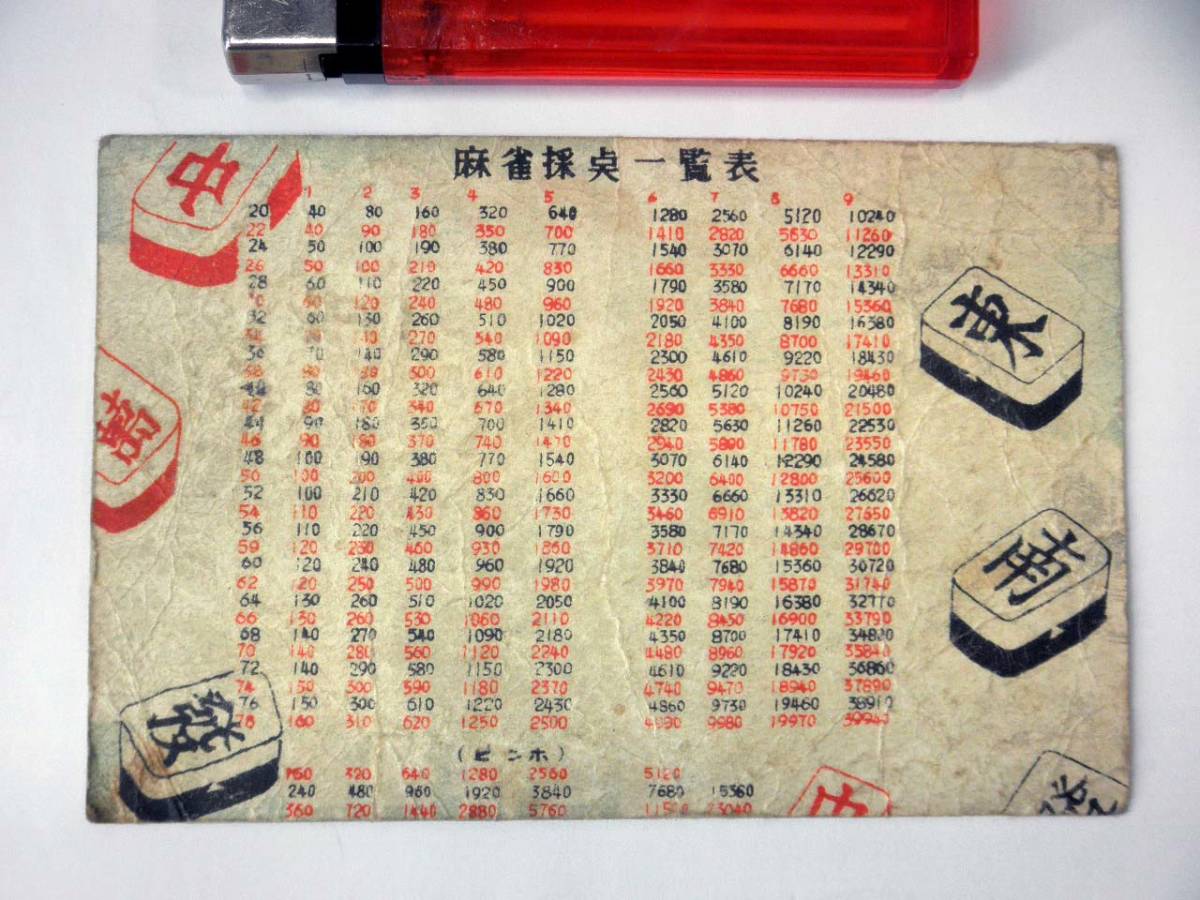 麻雀採点一覧表
中
1 2 3 4 5 6 7 8 9
20 40 80 160 320 640 1280 2560 5120 10240
22 40 90 180 350 700 1410 2820 5630 11260
24 50 100 190 380 770 1540 3070 6140 12290
26 50 100 210 420 830 1660 3330 6660 13310
28 60 110 220 450 900 1790 3580 7170 14340
60 120 240 480 960 1920 3840 7680 15360
32 60 130 260 510 1020 2050 4100 8190 16380
270 540 1090 2180 4350 8700 17410
36 70 140 290 580 1150 2300 4610 9220 18430
610 1220 2430 4860 9730 19460
80 160 320 640 1280 2560 5120 10240 20480
42 340 670 1340 2690 5380 10750 21500
44 90 180 350 700 1410 2820 5630 11260 22530
46 90 180 370 740 1470 2940 5890 11780 23550
48 100 190 380 770 1540 3070 6140 12290 24580
50 100 200 400 800 1600 3200 6400 12800 25600
52 100 210 420 830 1660 3330 6660 13310 26620
54 110 220 430 860 1730 3460 6910 13820 27650
56 110 220 450 900 1790 3580 7170 14340 28670
120 230 460 930 1860 3710 7420 14860 29700
60 120 240 480 960 1920 3840 7680 15360 30720
62 120 250 500 990 1980 3970 7940 15870 31740
64 130 260 510 1020 2050 4100 8190 16380 32770
66 130 260 530 1060 2110 4220 8450 16900 33790
68 140 270 540 1090 2180 4350 8700 17410 34820
70 140 280 560 1120 2240 4480 8960 17920 35840
72 140 290 580 1150 2300 4610 9220 18430 36860
74 150 300 590 1180 2370 4740 9470 18940 37890
76 150 300 610 1220 2430 4860 9730 19460 38910
78 160 310 620 1250 2500 9980 19970 39940
東
萬
南
發
(ピンホ)
160 320 640 1280 2560 5120
240 480 960 1920 3840 7680 15360
360 720 1440 2880 5760 11520 23040
中
發